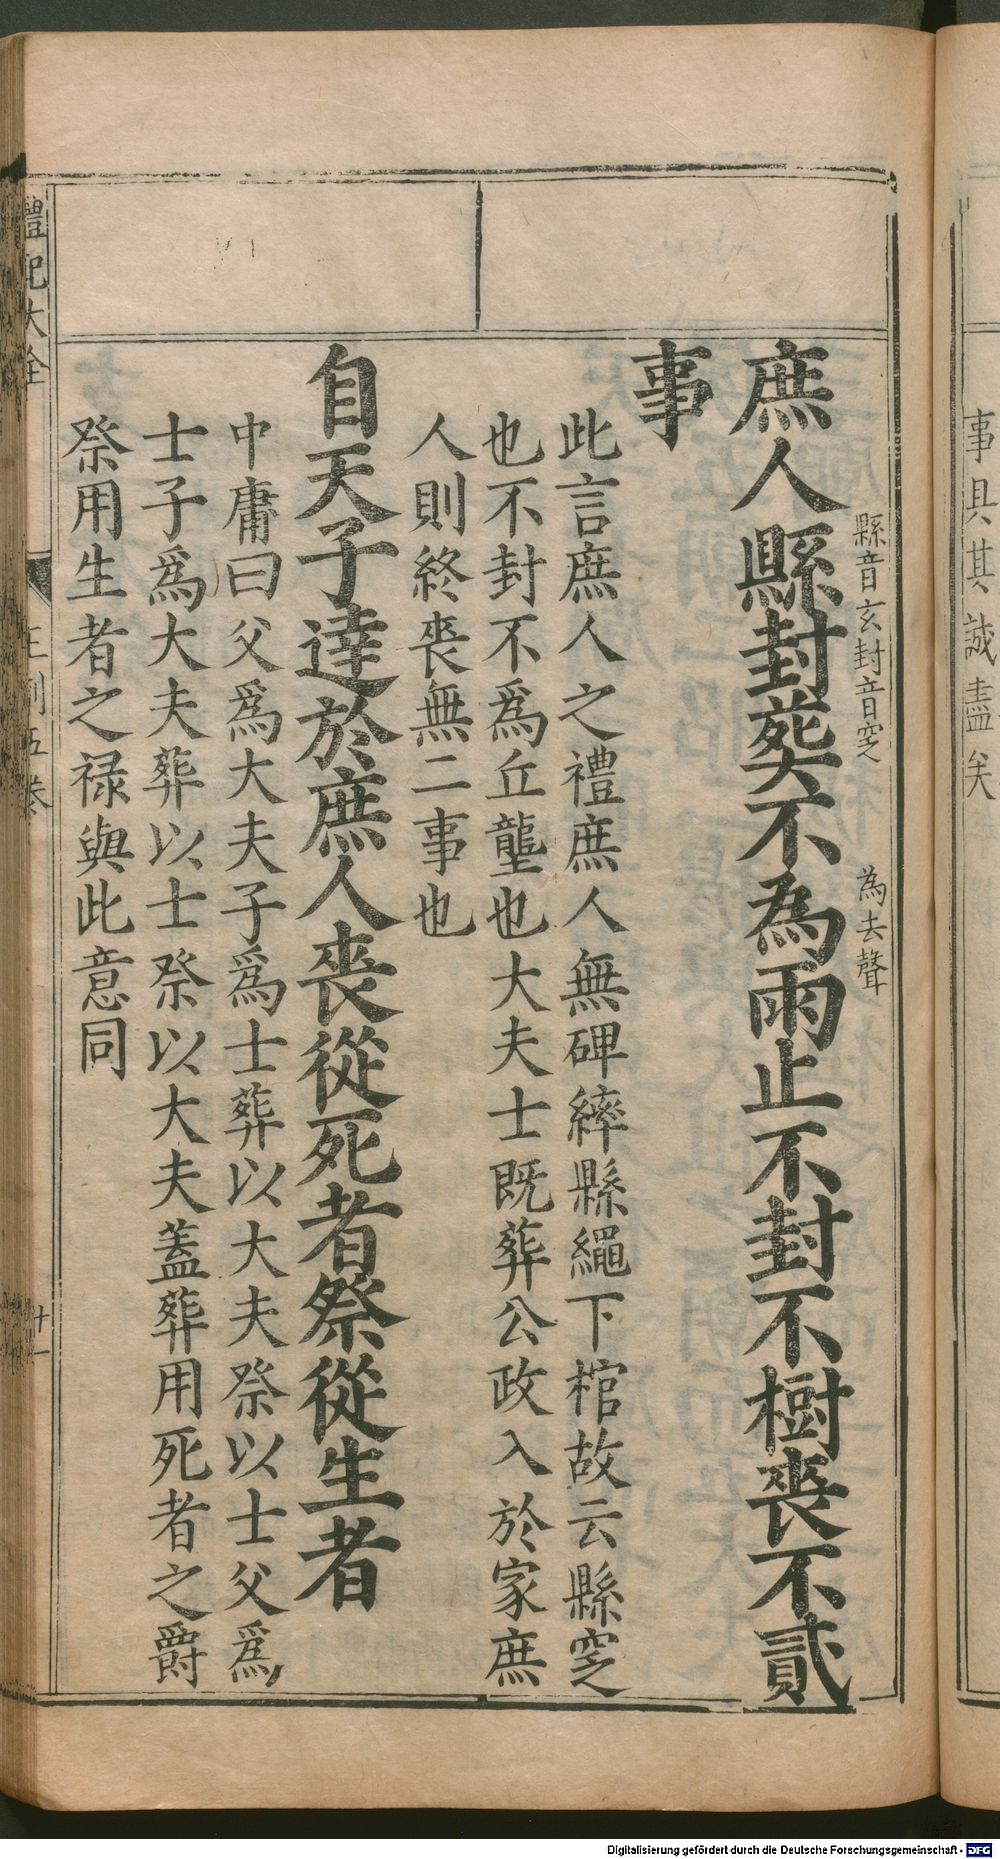 事具其誠盡矣
縣音玄封音窆 為去聲
庶人縣封葬不為雨止不封不樹喪不貳
事
此言庶人之禮庶人無碑繂縣繩下棺故云縣窆
也不封不爲丘壟也大夫士既葬公政入於家庶
人則終喪無二事也
自天子達於庶人喪從死者祭從生者
中庸曰父爲大夫子爲士葬以大夫祭以士父爲
士子爲大夫葬以士祭以大夫蓋葬用死者之爵
祭用生者之禄與此意同
禮記大全 王制五卷 十一
Digitalisierung gefördert durch die Deutsche Forschungsgemeinschaft - DFG